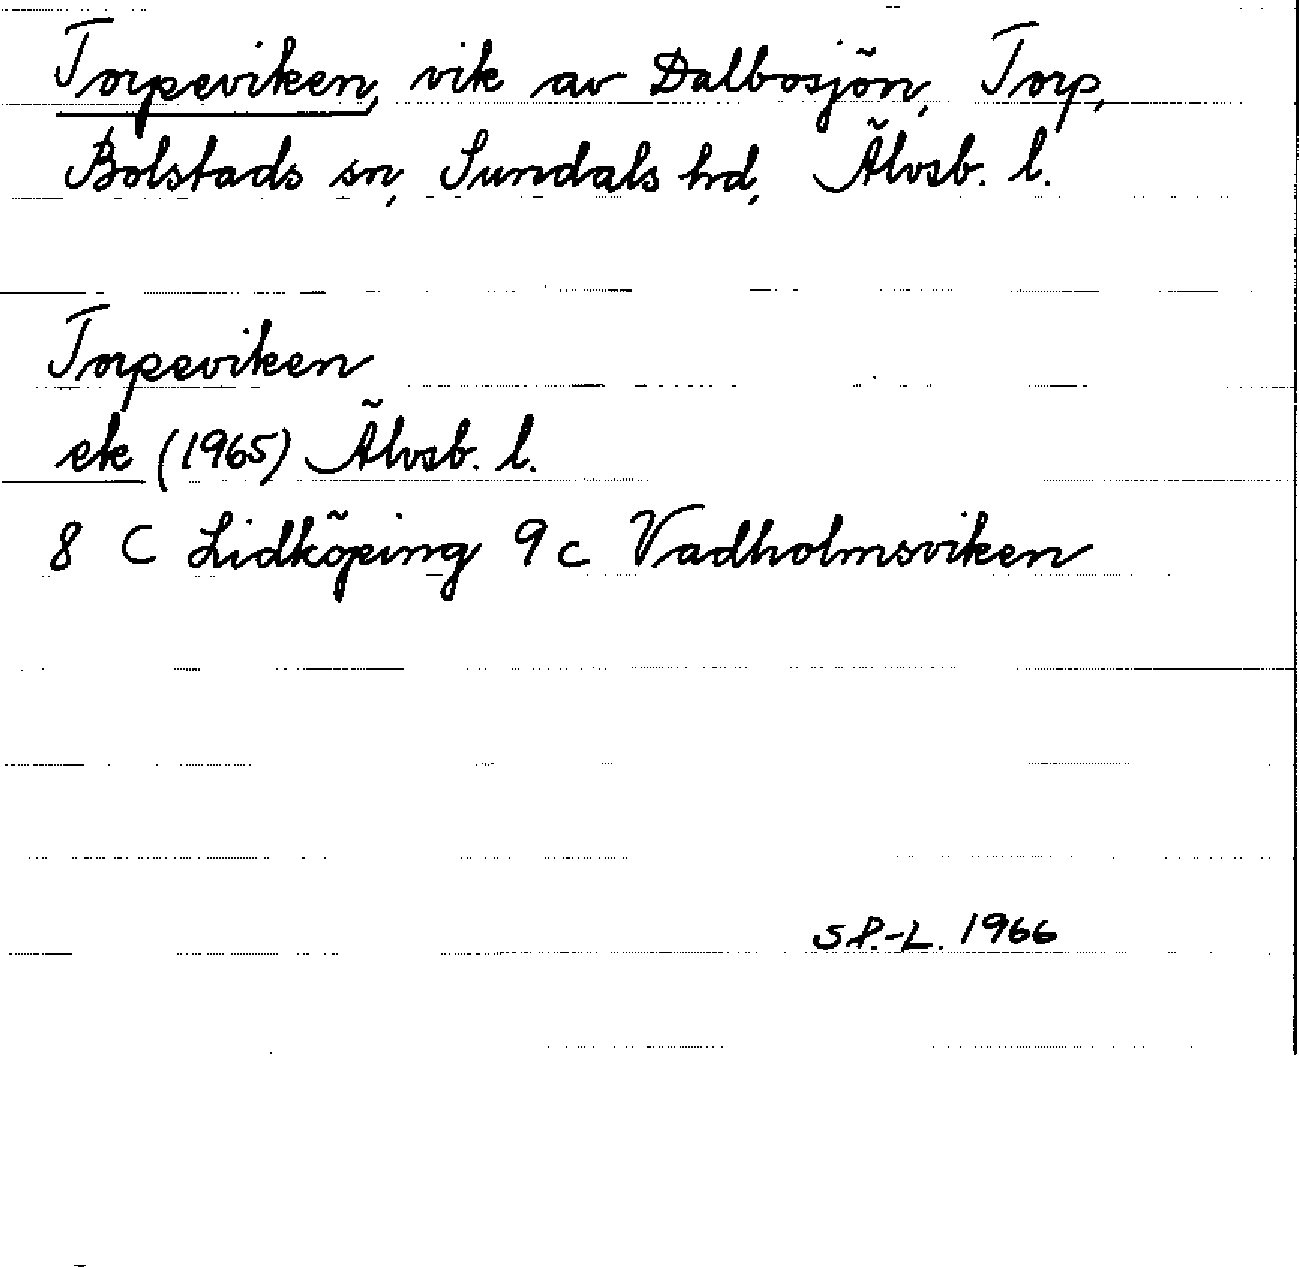 Torpeviken, vik av Dalbosjön, Torp,
Bolstads sn, Sundals hd, Älvsb. l.
Torpeviken
ek (1965) Älvsb. l.
8 C Lidköping 9 c Vadholmsviken
S P.-L. 1966